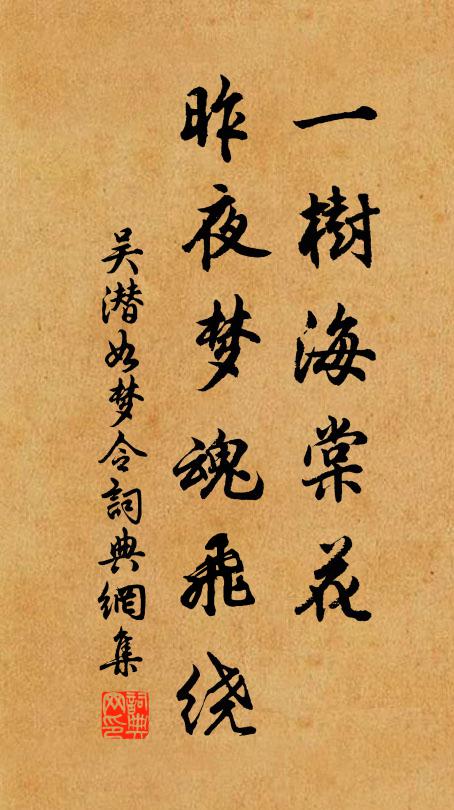 一樹海棠花
昨夜梦魂飛绕
吴潜如梦令詞典網集
詞典网印